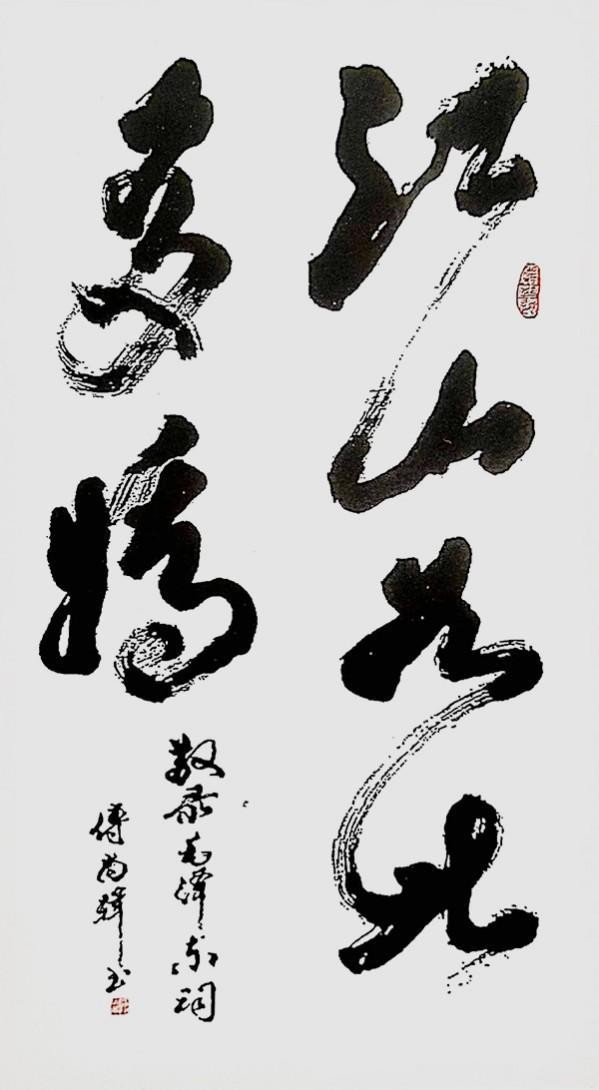 江山如此
多娇
敬录毛泽东词
傅尚辉书